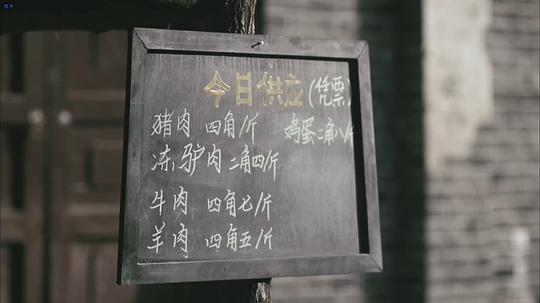 今日供应(凭票)
猪肉 四角/斤 鸡蛋二角八/斤
冻驴肉二角四/斤
牛肉 四角七/斤
羊肉 四角五/斤